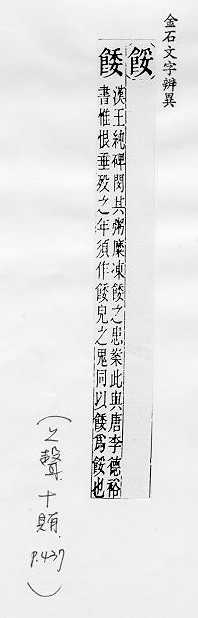 金石文字辨異
餒
餧 漢王純碑閔其粥糜凍餧之患案此與唐李德裕
書惟恨垂歿之年須作餧兒之鬼同以餧爲餒也
(上聲十賄 P.437)